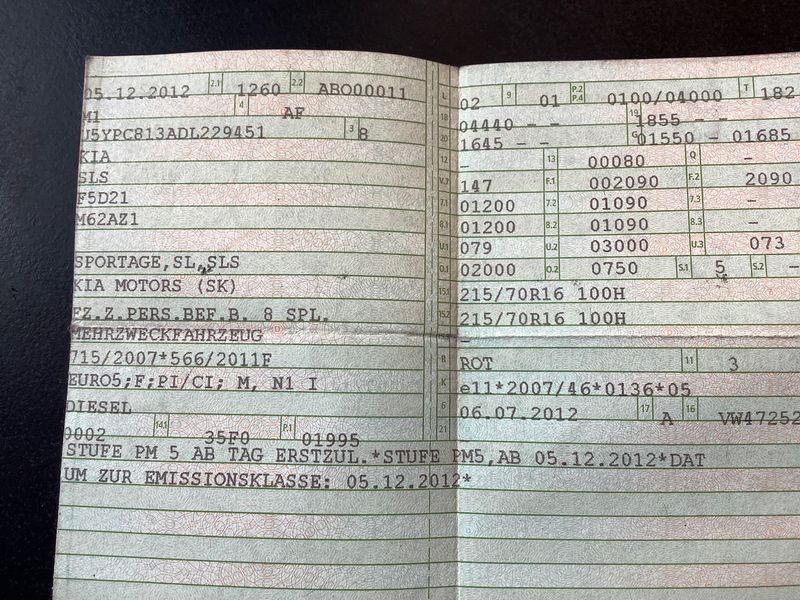 05.12.2012 2.1 1260 2.2 ABO00011
M1 4 AF
U5YPC813ADL229451 3 8
KIA
SLS
F5D21
M62AZ1
SPORTAGE,SL,SLS
KIA MOTORS (SK)
FZ.Z.PERS.BEF.B. 8 SPL.
MEHRZWECKFAHRZEUG
715/2007*566/2011F
EURO5;F;PI/CI; M, N1 I
DIESEL
0002 14.1 35F0 P.1 01995
L 02 9 01 P.2 P.4 0100/04000 T 182
18 04440 - - 19 1855 - -
20 1645 - - G 01550 - 01685
12 - 13 00080 Q -
V.7 147 F.1 002090 F.2 2090
7.1 01200 7.2 01090 7.3 -
8.1 01200 8.2 01090 8.3 -
U.1 079 U.2 03000 U.3 073
O.1 02000 O.2 0750 S.1 5 S.2 -
15.1 215/70R16 100H
15.2 215/70R16 100H
-
R ROT 11 3
K e11*2007/46*0136*05
6 06.07.2012 17 A 16 VW47252
21
STUFE PM 5 AB TAG ERSTZUL.*STUFE PM5,AB 05.12.2012*DAT
UM ZUR EMISSIONSKLASSE: 05.12.2012*